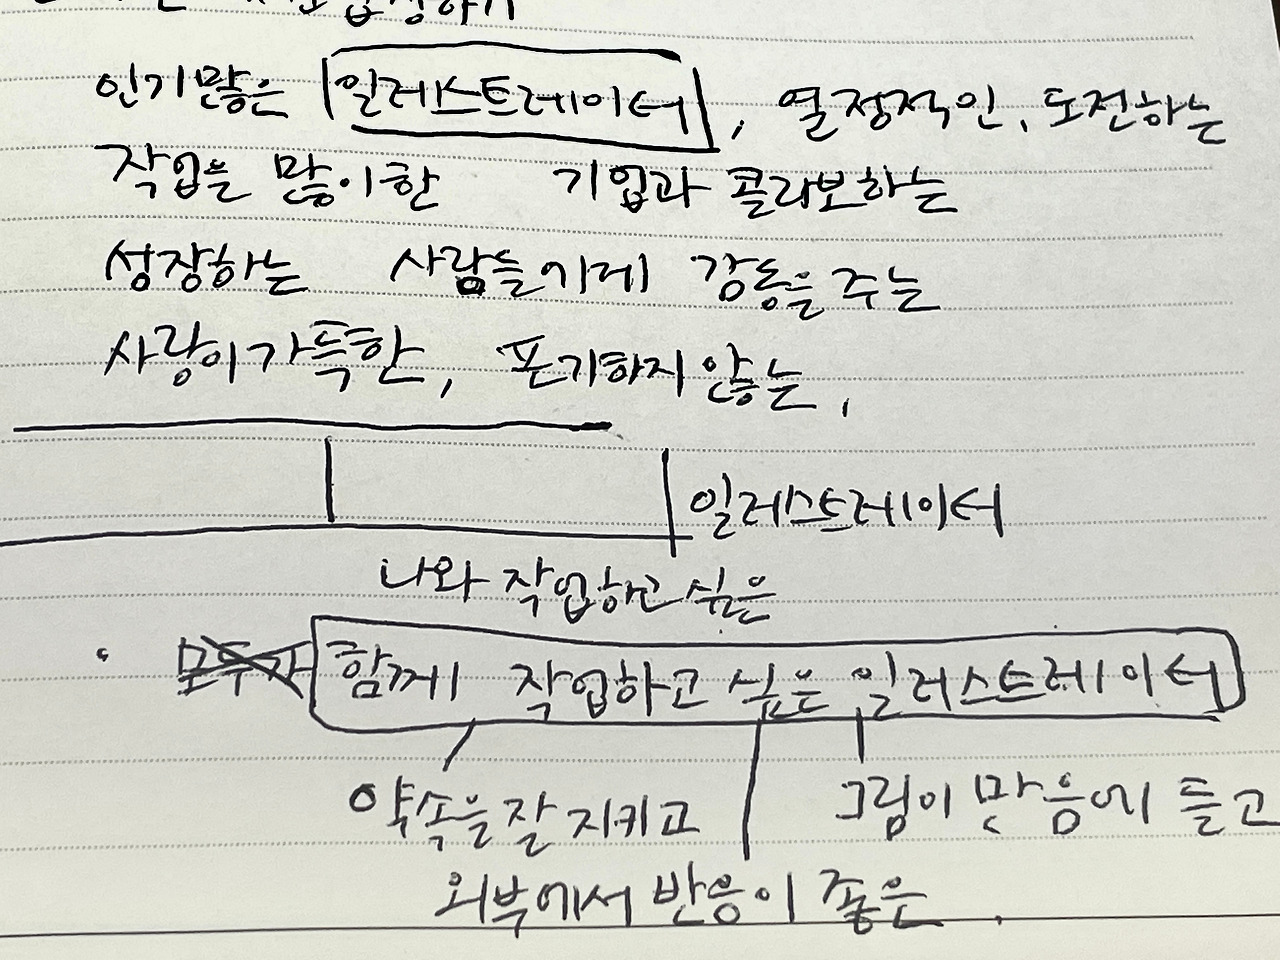 인기많은 일레스트레이터, 열정적인, 도전하는
작업을 많이한 기업과 콜라보하는
성장하는 사람들에게 감동을 주는
사랑이가득한, 포기하지 않는,
일러스트레이터
나와 작업하고 싶은
모두가 함께 작업하고 싶은 일러스트레이터
약속을 잘 지키고 그림이 맘음에 들고
외부에서 반응이 좋은